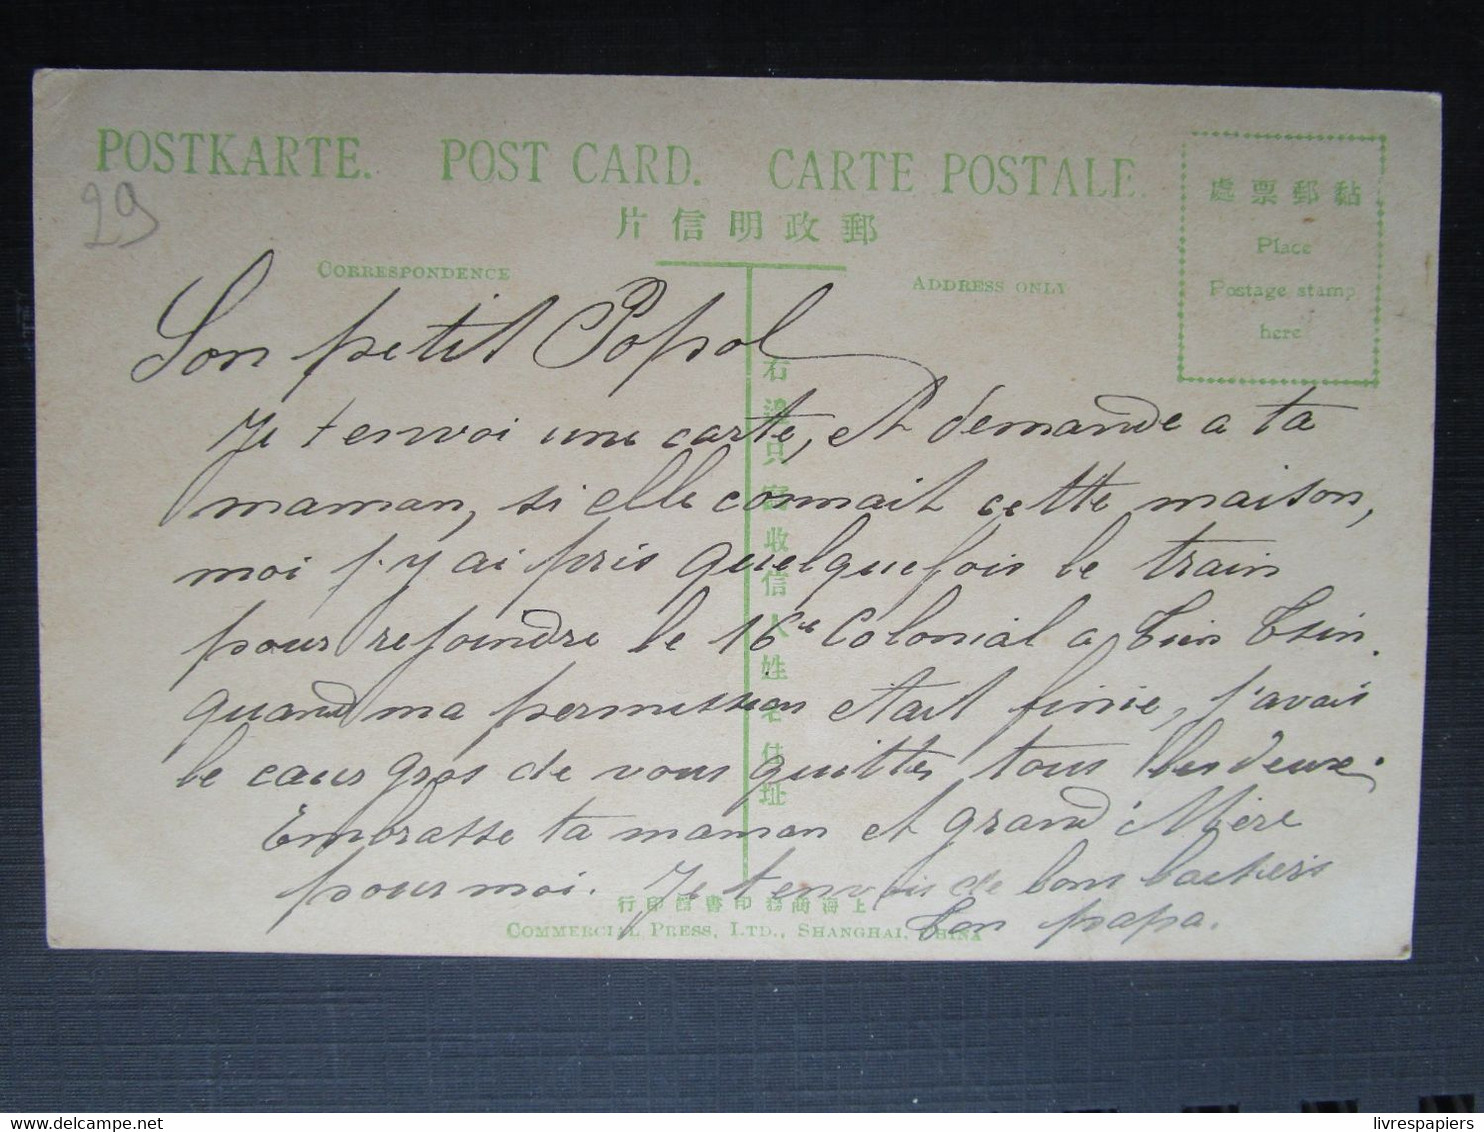 POSTKARTE. POST CARD. CARTE POSTALE.
29
郵政明信片
黏郵票處
Place
Postage stamp
here
CORRESPONDENCE
ADDRESS ONLY
右邊只寫收信人姓名住址
Son petit Popol
Je t envoi une carte, et demande a ta
maman, si elle connait cette maison,
moi j'y ai pris quelquefois le train
pour rejoindre le 16e Colonial a Tien Tsin.
quand ma permission etait finie, j'avais
le cœur gros de vous quitter tous les deux.
Embrasse ta maman et grand'Mère
pour moi. Je t envois de bons baisers
ton papa.
上海商務印書館印行
COMMERCIAL PRESS, LTD., SHANGHAI, CHINA
livrespapiers